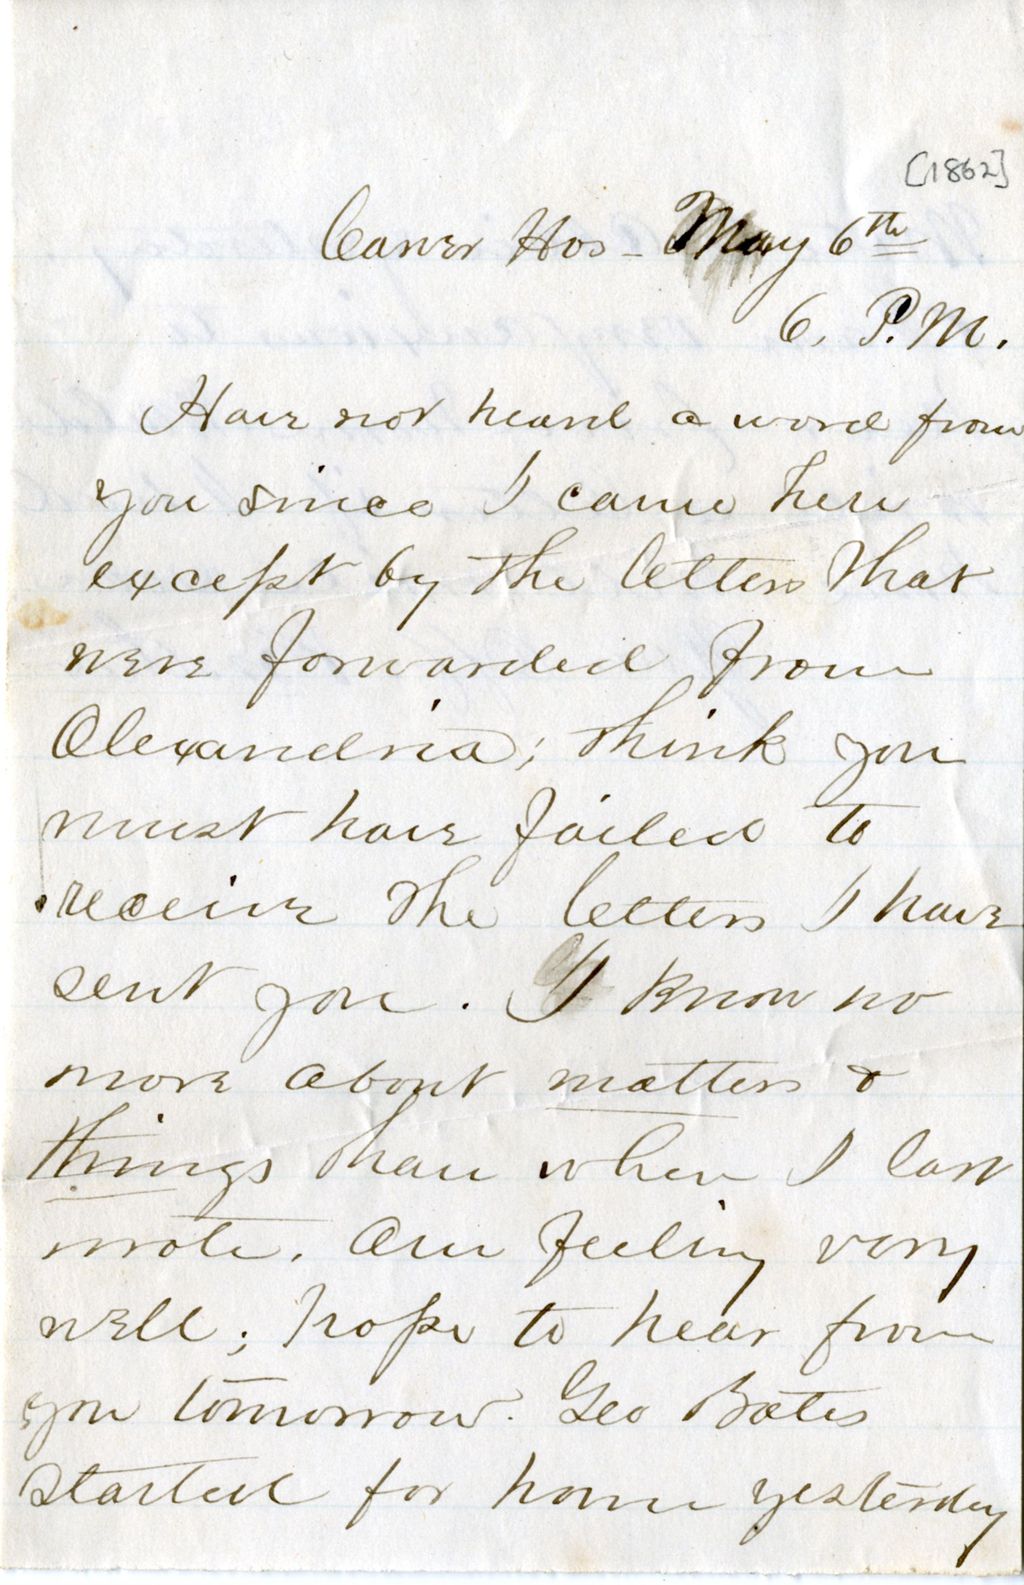 [1862]
Carver Hos - May 6th
6. P.M.
Have not heard a word from
you since I came here
except by the letters that
were forwarded from
Alexandria; think you
must have failed to
receive the letters I have
sent you. I know no
more about matters &
things than when I last
wrote. Am feeling very
well; hope to hear from
you tomorrow. Geo Bates
started for home yesterday